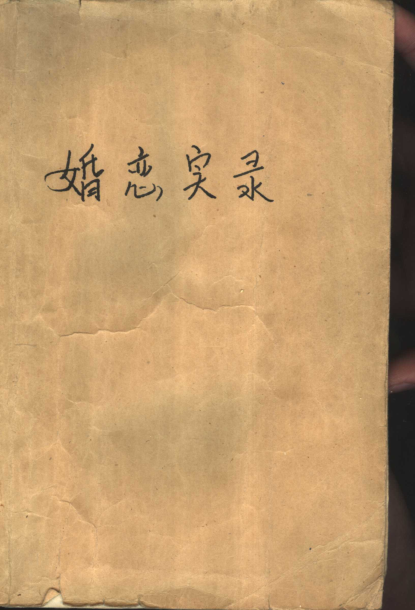 婚恋实录